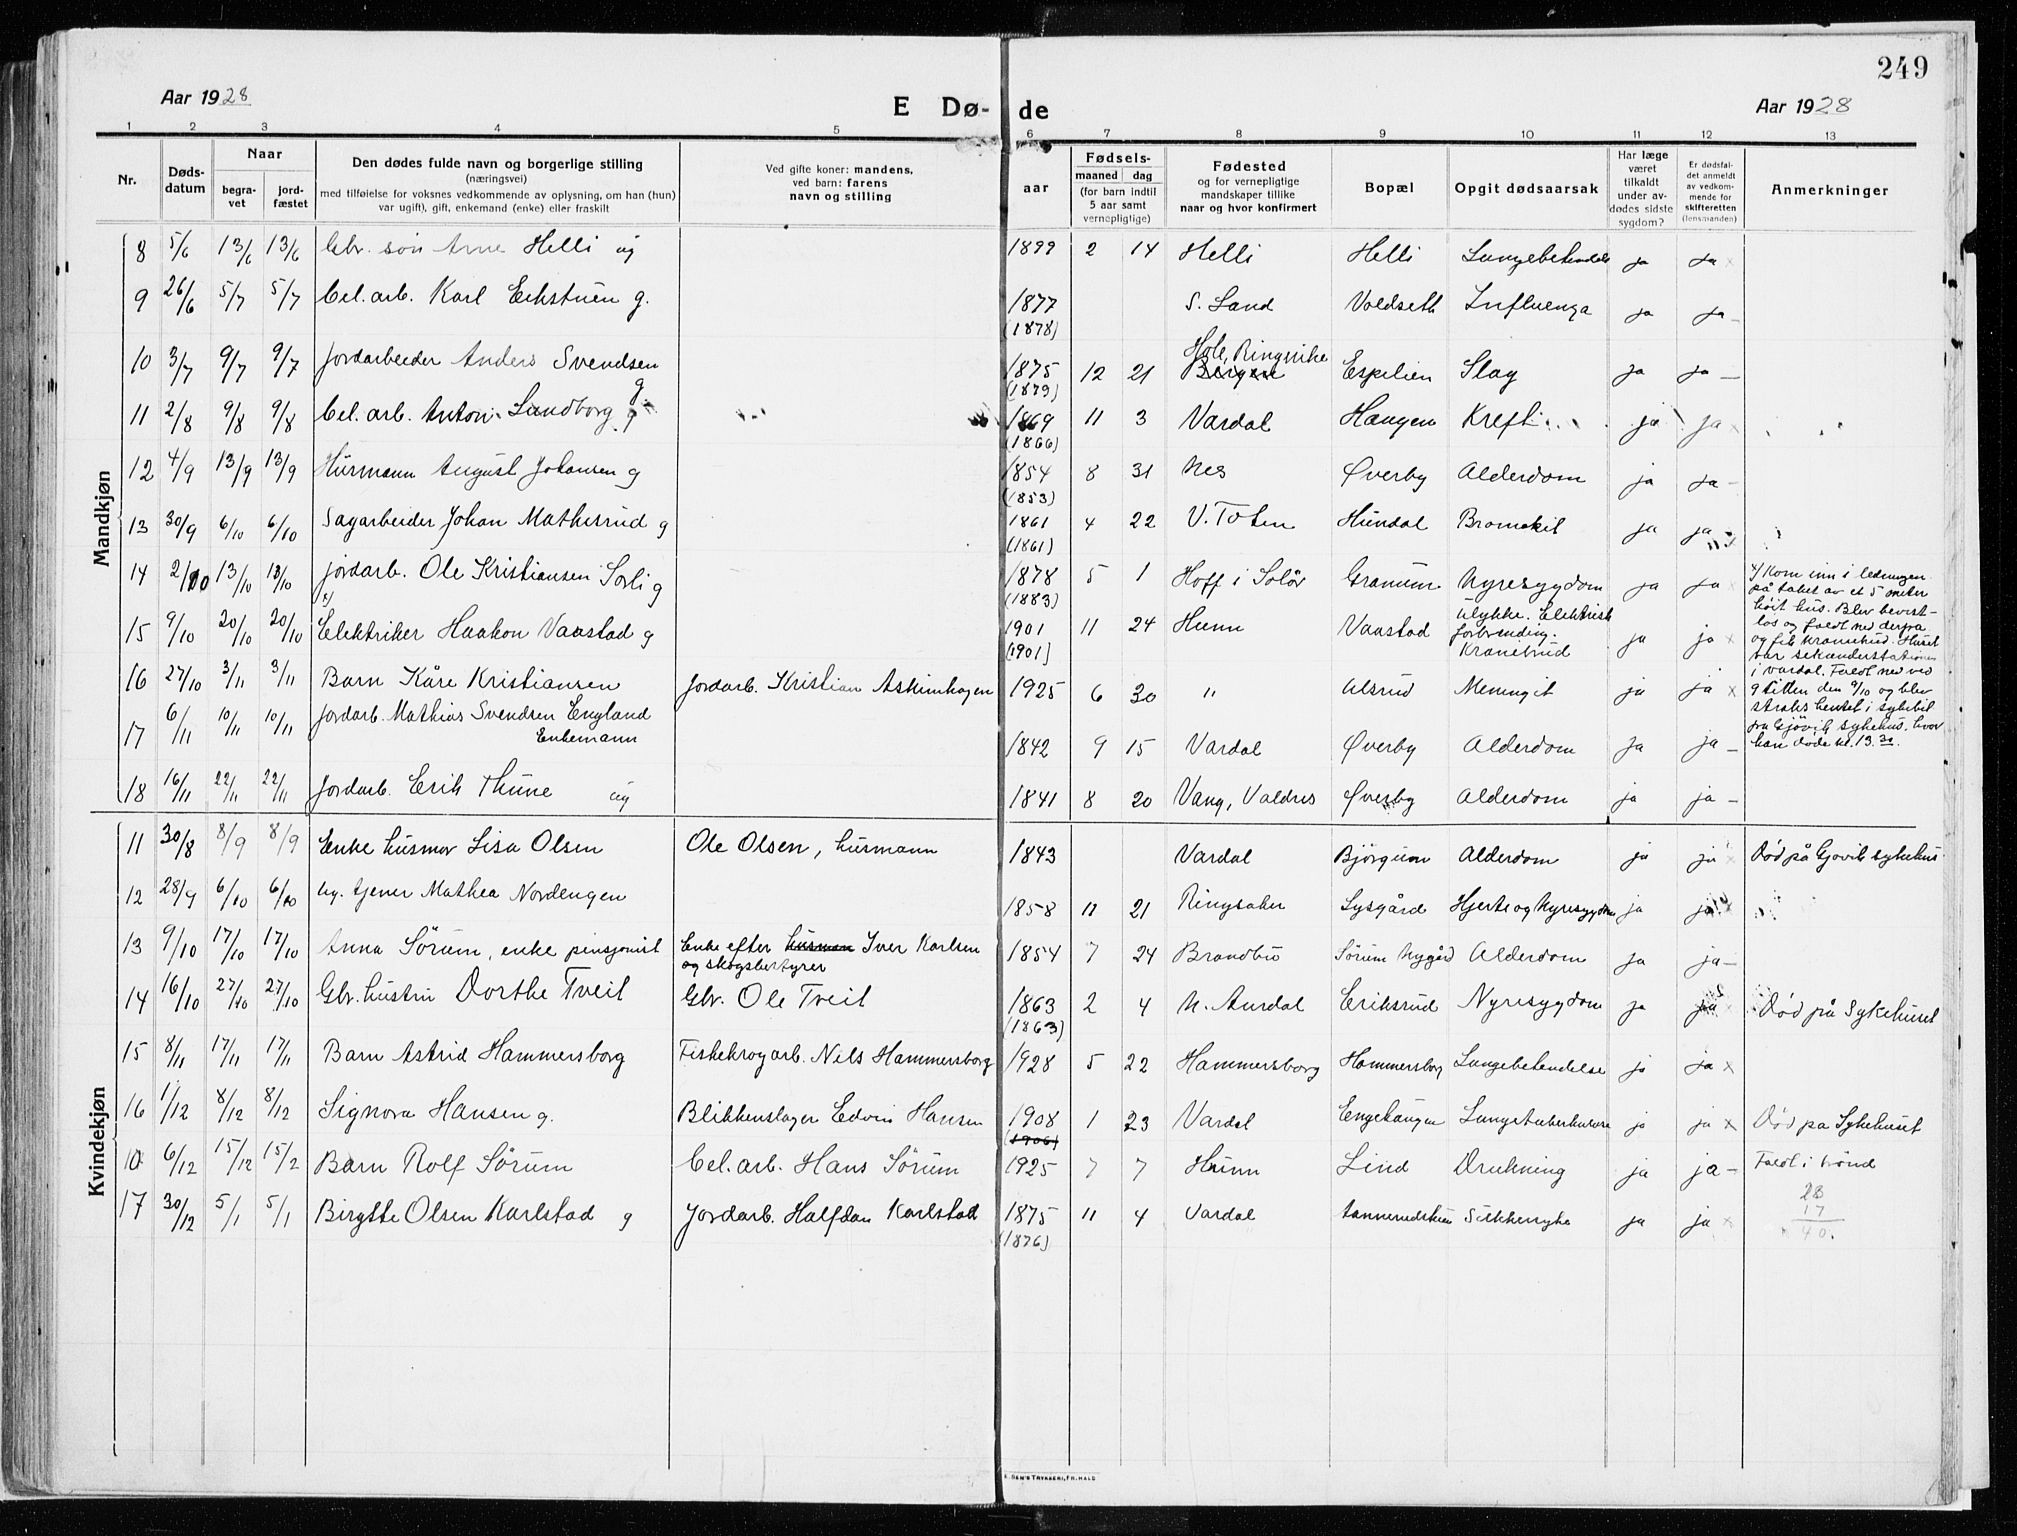 249
Aar 1928
E Dø- de
Aar 1928
1 2 3 4 5 6 7 8 9 10 11 12 13
Nr.
Døds-
datum
Naar
begra-
vet
jord-
fæstet
Den dødes fulde navn og borgerlige stilling
(næringsvei)
med tilføielse for voksnes vedkommende av oplysning, om han (hun)
var ugift), gift, enkemand (enke) eller fraskilt
Ved gifte koner: mandens,
ved barn: farens
navn og stilling
Fødsels-
aar
maaned dag
(for barn indtil
5 aar samt
vernepligtige)
Fødested
og for vernepligtige
mandskaper tillike
naar og hvor konfirmert
Bopæl
Opgit dødsaarsak
Har læge
været
tilkaldt
under av-
dødes sidste
sygdom?
Er dødsfal-
det anmeldt
av vedkom-
mende for
skifteretten
(lensmanden)
Anmerkninger
Mandkjøn
8 5/6 13/6 13/6 Gbr. søn Arne Helli ug 1899 2 14 Helli Helli Lungebetendels ja ja x
9 26/6 5/7 5/7 Cel. arb. Karl Eekstuen g. 1877 S. Land Voldseth Influenza ja ja –
(1878)
Hole, Ringerike
10 3/7 9/7 9/7 Jordarbeider Anders Svendsen g 1875 12 21 Bergen Espelien Slag ja ja –
(1879)
11 2/8 9/8 9/8 Cel. arb. Anton Lundborg g 1869 11 3 Vardal Haugen Kreft ja ja x
(1866)
12 4/9 13/9 13/9 Husmann August Johansen g 1854 8 31 Nes Øverby Alderdom ja ja –
(1853)
13 30/9 6/10 6/10 Sagarbeider Johan Mathisrud g 1861 4 22 V. Toten Hundal Bronekit ja ja
(1861)
14 2/10 13/10 13/10 jordarb. Ole Kristiansen Sorli g 1878 5 1 Hoff i Solör Granum Nyresygdom ja ja x
(1883)
15 9/10 20/10 20/10 x) Elektriker Haakon Vaastad g 1901 11 24 Hunn Vaastad Ulykke. Elektrisk ja ja x
(1901)
forbrending.
Kranebrud
x) Kom inn i ledningen
på taket av et 5 meter
höit hus. Blev bevist-
lös og faldt ned derfra
og fik kranebrud. Huset
var sekunderstationen
i Vardal. Faldt ned ved
9 tiden den 9/10 og blev
straks hentet i sykebil
fra Gjövik sykehus, hvor
han døde kl. 13.30.
16 27/10 3/11 3/11 Barn Kåre Kristiansen Jordarb. Kristian Askimhagen 1925 6 30 " Alsrud Meningit ja ja x
17 6/11 10/11 10/11 Jordarb. Mathias Svendsen England
Enkemann 1842 9 15 Vardal Øverby Alderdom ja ja –
18 16/11 22/11 22/11 Jordarb. Erik Thune ug 1841 8 20 Vang, Valdres Øverby Alderdom ja ja –
Kvindekjøn
11 30/8 8/9 8/9 Enke husmor Lisa Olsen Ole Olsen, husmann 1843 Vardal Bjørgum Alderdom ja ja x Död på Gjovik sykehus
12 28/9 6/10 6/10 Ug. tjener Mathea Nordengen 1858 11 21 Ringsaker Lysgård Hjerte og Nyresygdom ja ja
13 9/10 17/10 17/10 Anna Sörum, enke pensjonist Enke efter husman Iver Karlsen 1854 7 24 Brandbu Sörum Nygård Alderdom ja ja –
og skogsbestyrer
14 16/10 27/10 27/10 Gbr. hustru Dorthe Tveit Gbr. Ole Tveit 1863 2 4 N. Aurdal Eriksrud Nyresygdom ja ja Död på Sykehuset
(1863)
15 8/11 17/11 17/11 Barn Astrid Hammersborg Fiskekrogarb. Nils Hammersborg 1928 5 22 Hammersborg Hammersborg Lungebetendelse ja ja x
16 1/12 8/12 8/12 Signora Hansen g. Blikkenslager Edvin Hansen 1908 1 23 Vardal Engehaugen Lungetuberkulose ja ja x Död på Sykehuset
(1906)
10 6/12 15/12 15/2 Barn Rolf Sörum Cel. arb. Hans Sörum 1925 7 7 Hunn Lind Drukning ja ja – Faldt i brönd
17 30/12 5/1 5/1 Birgitte Olsen Karlstad g Jordarb. Halfdan Karlstad 1875 11 4 Vardal Sukkersyke ja ja x
(1876)
23
17
40.
E. SEM'S TRYKKERI, FR.HALD